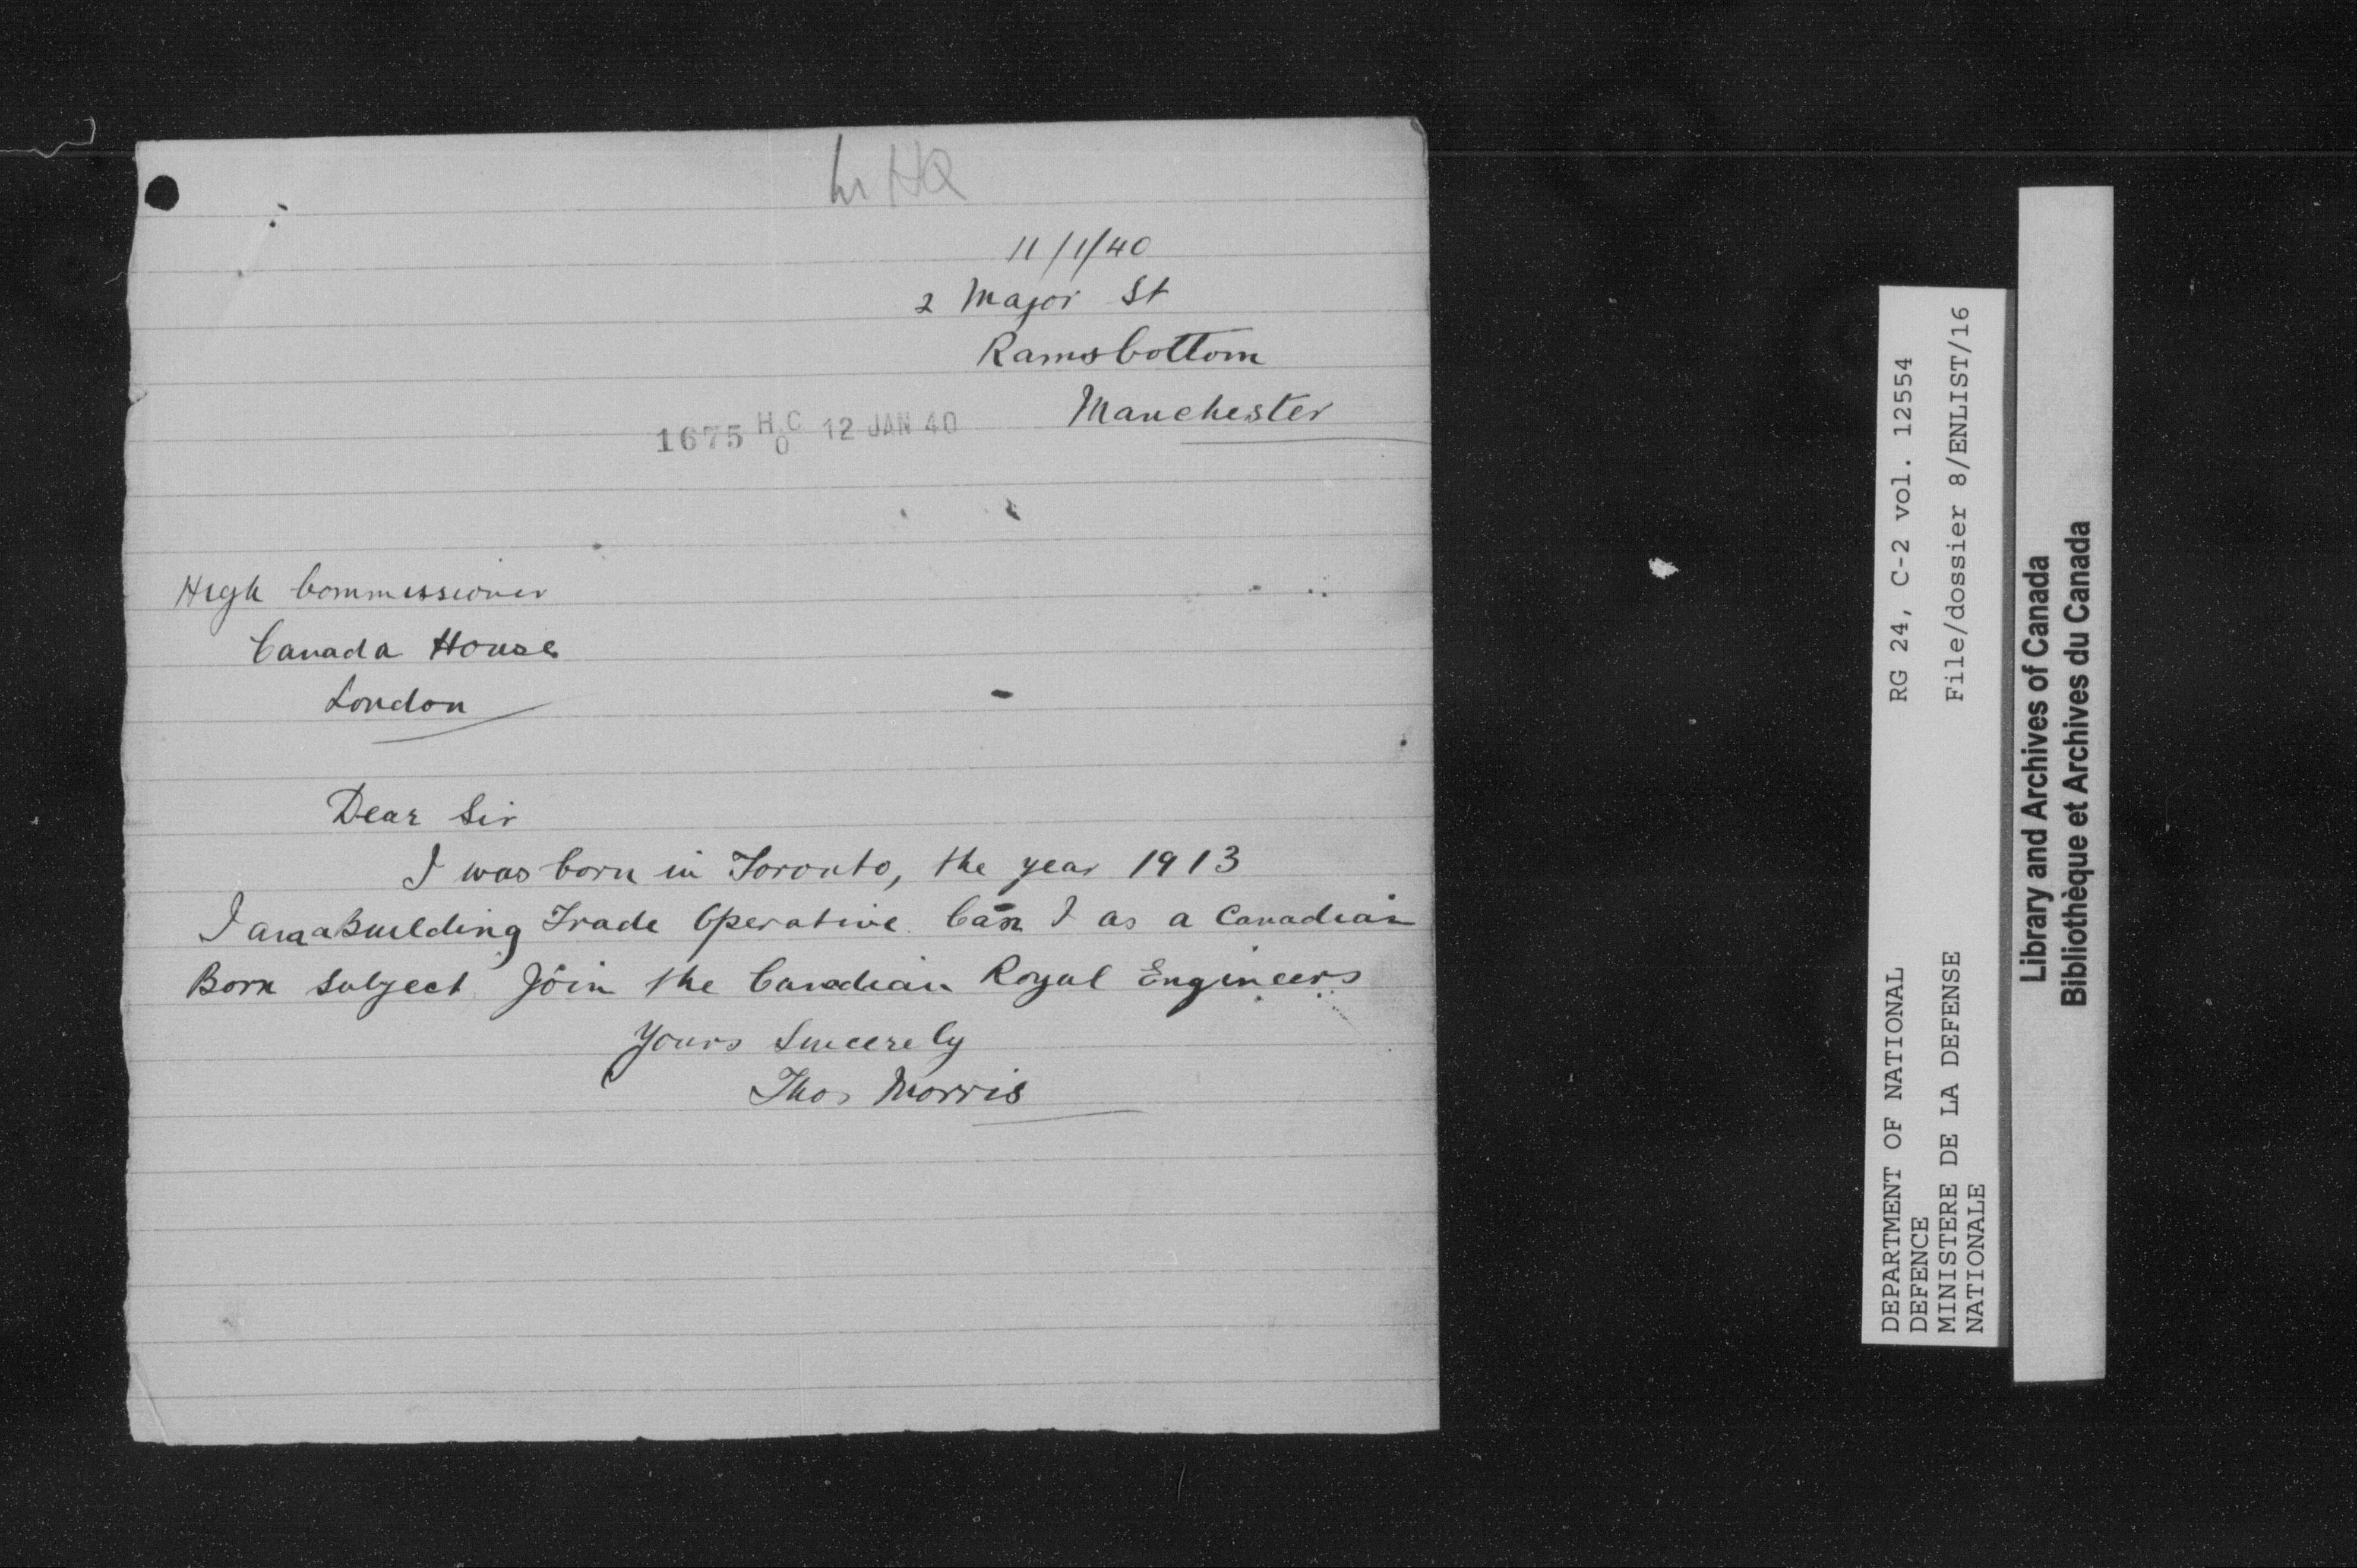 HQ
11/1/40
2 Major St
Ramsbottom
Manchester
1675 H.C.O 12 JAN 40
High Commissioner
Canada House
London
Dear Sir
I was born in Toronto, the year 1913
I am a Building Trade Operative Can I as a Canadian
Born subject Join the Canadian Royal Engineers
Yours Sincerely
Thos Morris
DEPARTMENT OF NATIONAL DEFENCE
MINISTERE DE LA DEFENSE NATIONALE
RG 24, C-2 vol. 12554
File/dossier 8/ENLIST/16
Library and Archives of Canada
Bibliothèque et Archives du Canada